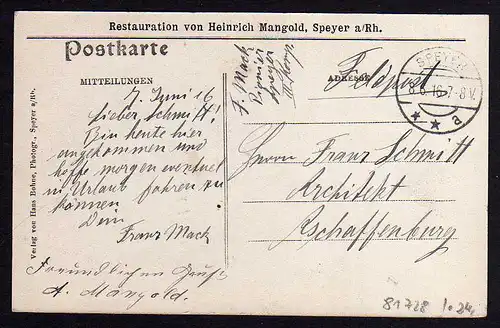 Restauration von Heinrich Mangold, Speyer a/Rh.
Postkarte
MITTEILUNGEN
7. Juni 16
Lieber Schmitt!
Bin heute hier
angekommen und
hoffe morgen eventuel
in Urlaub fahren zu
können
Dein
Franz Mack
Freundlichen Gruß
A. Mangold.
Verlag von Hans Bohne, Photogr., Speyer a/Rh.
F. Mack
Pionier
Speyer
ADRESSE
Feldpost
SPEYER
8.6.16.7-8V.
* * a
Herrn Franz Schmitt
Architekt
Aschaffenburg
81728